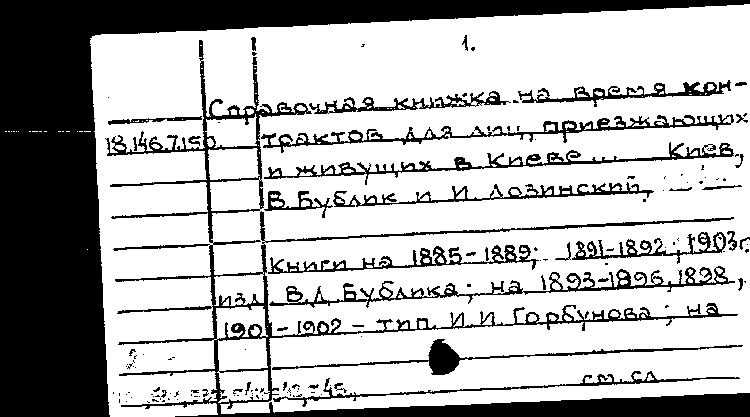 1.
Справочная книжка на время кон-
18.146.7.150. трактов для лиц, приезжающих
и живущих в Киеве... Киев,
В. Бублик и И. Лозинский,
Книги на 1885-1889; 1891-1892; 1903г.
изд. В.Д. Бублика; на 1893-1896, 1898,
1901-1902 - тип. И.И. Горбунова; на
см. сл